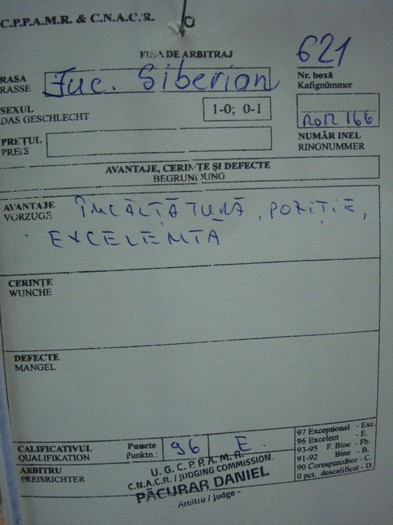 C.P.P.A.M.R. & C.N.A.C.R.
FIȘA DE ARBITRAJ
621
RASA
RASSE
Juc. Siberian
Nr. boxă
Kafignümmer
SEXUL
DAS GESCHLECHT
1-0; 0-1
RoR 166
PREȚUL
PREIS
NUMĂR INEL
RINGNUMMER
AVANTAJE, CERINȚE ȘI DEFECTE
BEGRUNDUNG
AVANTAJE
VORZUGE
ÎNCĂLȚĂTURĂ, POZIȚIE,
EXCELENTA
CERINȚE
WUNCHE
DEFECTE
MANGEL
CALIFICATIVUL
QUALIFIKATION
Puncte
Punktn.:
96
E.
97 Excepțional - Exc.
96 Excelent - E.
93-95 F. Bine - Fb.
91-92 Bine - B.
90 Corespunzător - C.
0 pct. descalificat - D.
ARBITRU
PREISRICHTER
U.G.C.P.P.A.M.R.
C.N.A.C.R. / JUDGING COMMISSION.
PĂCURAR DANIEL
- Arbitru / Judge -